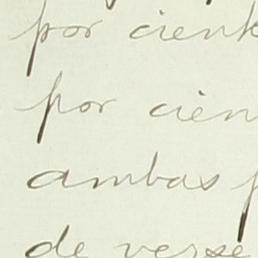 por cient
por cien
ambas p
de verse